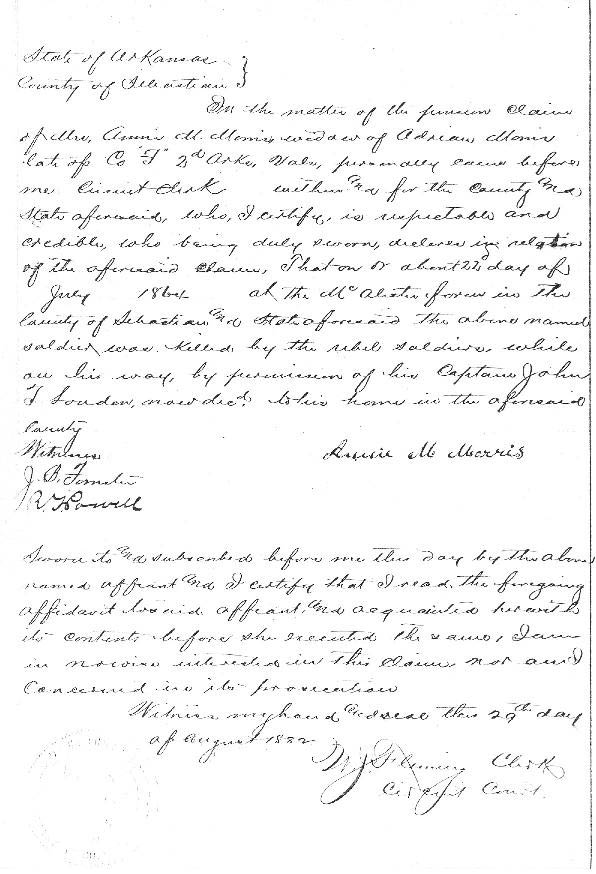 State of Arkansas
County of Sebastian }
In the matter of the pension claim
of Mrs. Annie M. Morris widow of Adrian Morris
late of Co "F" 2d Arks, Vols, personally came before
me Circuit Clerk within and for the County and
State aforesaid, who, I certify, is respectable and
credible, who being duly sworn, declares in relation
of the aforesaid claim, That on or about 22d day of
July 1864 at the McAlister in the
County of Sebastian and State aforesaid the above named
soldier was killed by the rebel soldiers, while
on his way, by permission of his Captain John
T Louden, now decd. to his home in the aforesaid
County
Witness
Annie M Morris
J. B.
Howell
Sworn to and subscribed before me this day by the above
named affiant and I certify that I read the foregoing
affidavit to said affiant, and acquainted her with
its contents before she executed the same, I am
in nowise interested in this claim nor am I
concerned in its prosecution
Witness my hand and seal this 29th day
of August 1882
Fleming Clerk
Circuit Court.